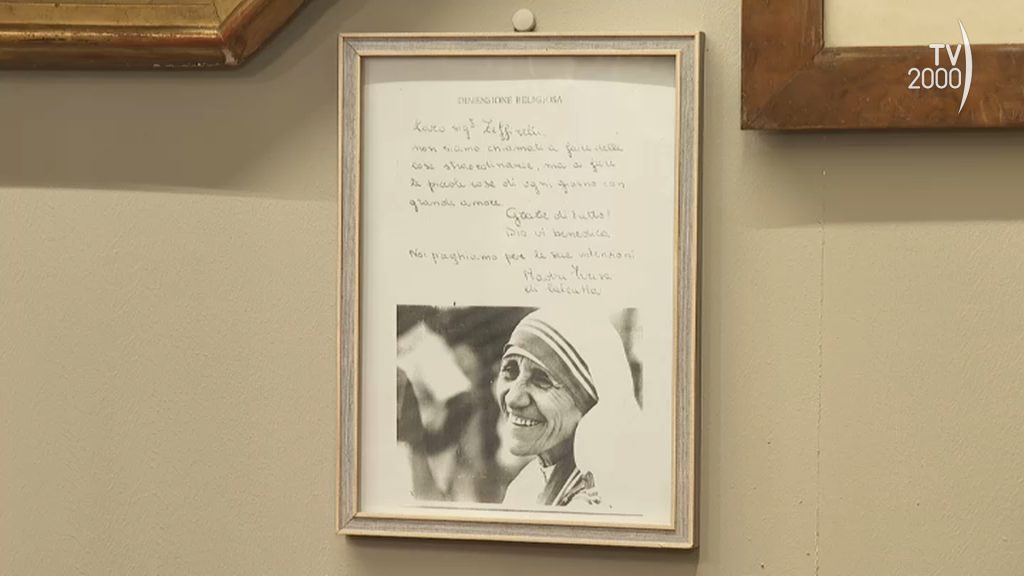 DIMENSIONE RELIGIOSA
Caro sig. Zeffirelli,
non siamo chiamati a fare delle
cose straordinarie, ma a fare
le piccole cose di ogni giorno con
grande amore.
Grazie di tutto!
Dio vi benedica
Noi preghiamo per le sue intenzioni
Madre Teresa
di Calcutta
TV
2000